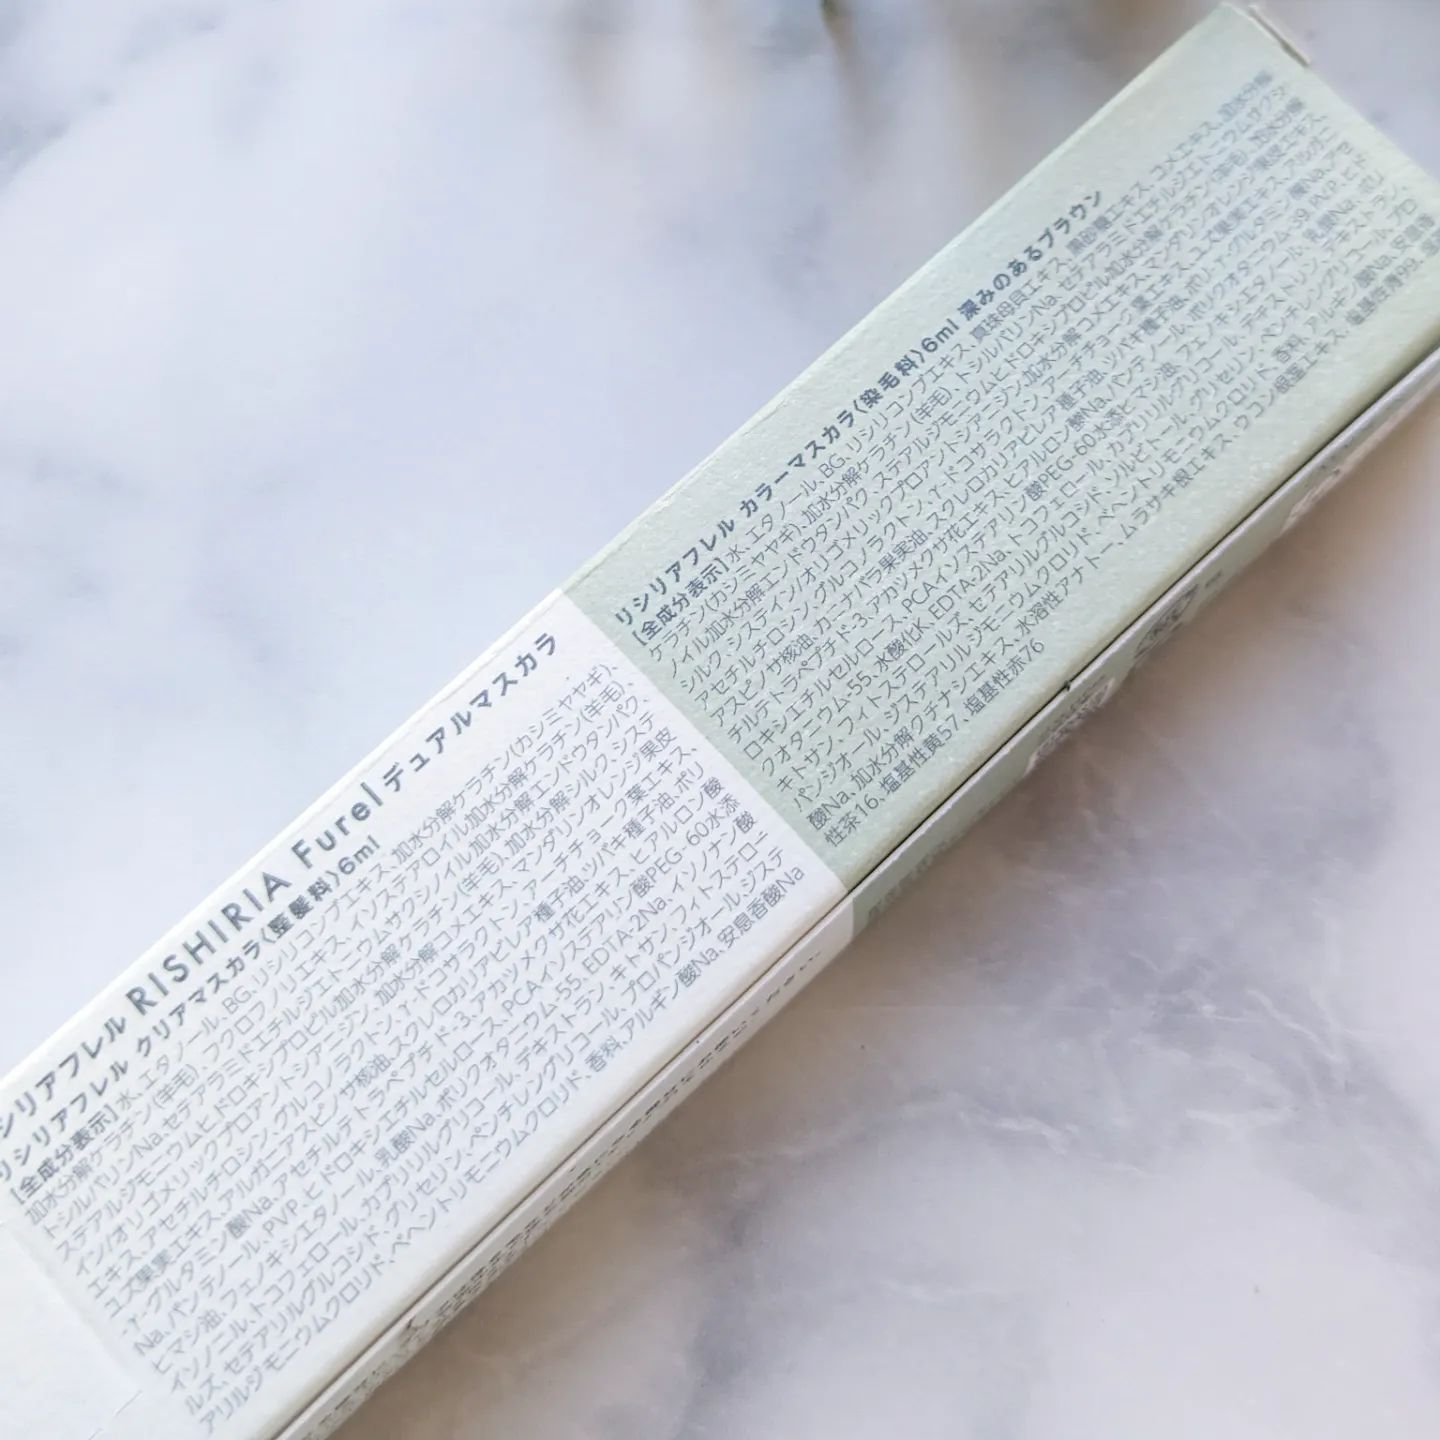 リシリアフレル RISHIRIA Furel デュアルマスカラ
リシリアフレル クリアマスカラ〈整髪料〉6ml
[全成分表示]水、エタノール、BG、リシリコンブエキス、加水分解ケラチン(カシミヤヤギ)、
加水分解ケラチン(羊毛)、フクロフノリエキス、イソステアロイル加水分解ケラチン(羊毛)、
トシルバリンNa、セテアラミドエチルジエトニウムサクシノイル加水分解エンドウタンパク、
ステアルジモニウムヒドロキシプロピル加水分解ケラチン(羊毛)、加水分解シルク、システ
イン/オリゴメリックプロアントシアニジン、加水分解コメエキス、マンダリンオレンジ果皮
エキス、アセチルチロシン、グルコノラクトン、γ-ドコサラクトン、アーチチョーク葉エキス、
ユズ果実エキス、アルガニアスピノサ核油、スクレロカリアビレア種子油、ツバキ種子油、ポリ
-γ-グルタミン酸Na、アセチルテトラペプチド-3、アカツメクサ花エキス、ヒアルロン酸
Na、パンテノール、PVP、ヒドロキシエチルセルロース、PCAイソステアリン酸PEG-60水添
ヒマシ油、フェノキシエタノール、乳酸Na、ポリクオタニウム-55、EDTA-2Na、イソノナン酸
イソノニル、トコフェロール、カプリリルグリコール、デキストラン、キトサン、フィトステロー
ルズ、セテアリルグルコシド、グリセリン、ペンチレングリコール、プロパンジオール、ジステ
アリルジモニウムクロリド、ベヘントリモニウムクロリド、香料、アルギン酸Na、安息香酸Na
リシリアフレル カラーマスカラ〈染毛料〉6ml 深みのあるブラウン
[全成分表示]水、エタノール、BG、リシリコンブエキス、真珠母貝エキス、黒砂糖エキス、コメエキス、加水分解
ケラチン(カシミヤヤギ)、加水分解ケラチン(羊毛)、トシルバリンNa、セテアラミドエチルジエトニウムサクシ
ノイル加水分解エンドウタンパク、ステアルジモニウムヒドロキシプロピル加水分解ケラチン(羊毛)、加水分解
シルク、システイン/オリゴメリックプロアントシアニジン、加水分解コメエキス、マンダリンオレンジ果皮エキス、
アセチルチロシン、グルコノラクトン、γ-ドコサラクトン、アーチチョーク葉エキス、ユズ果実エキス、アルガニ
アスピノサ核油、カニナバラ果実油、スクレロカリアビレア種子油、ツバキ種子油、ポリ-γ-グルタミン酸Na、アセ
チルテトラペプチド-3、アカツメクサ花エキス、ヒアルロン酸Na、パンテノール、ポリクオタニウム-39、PVP、ヒド
ロキシエチルセルロース、PCAイソステアリン酸PEG-60水添ヒマシ油、フェノキシエタノール、乳酸Na、ポリ
クオタニウム-55、水酸化K、EDTA-2Na、トコフェロール、カプリリルグリコール、デキストリン、デキストラン、
キトサン、フィトステロールズ、セテアリルグルコシド、ソルビトール、グリセリン、ペンチレングリコール、プロ
パンジオール、ジステアリルジモニウムクロリド、ベヘントリモニウムクロリド、香料、アルギン酸Na、安息香
酸Na、加水分解クチナシエキス、水溶性アナトー、ムラサキ根エキス、ウコン根茎エキス、塩基性青99、塩基
性茶16、塩基性黄57、塩基性赤76